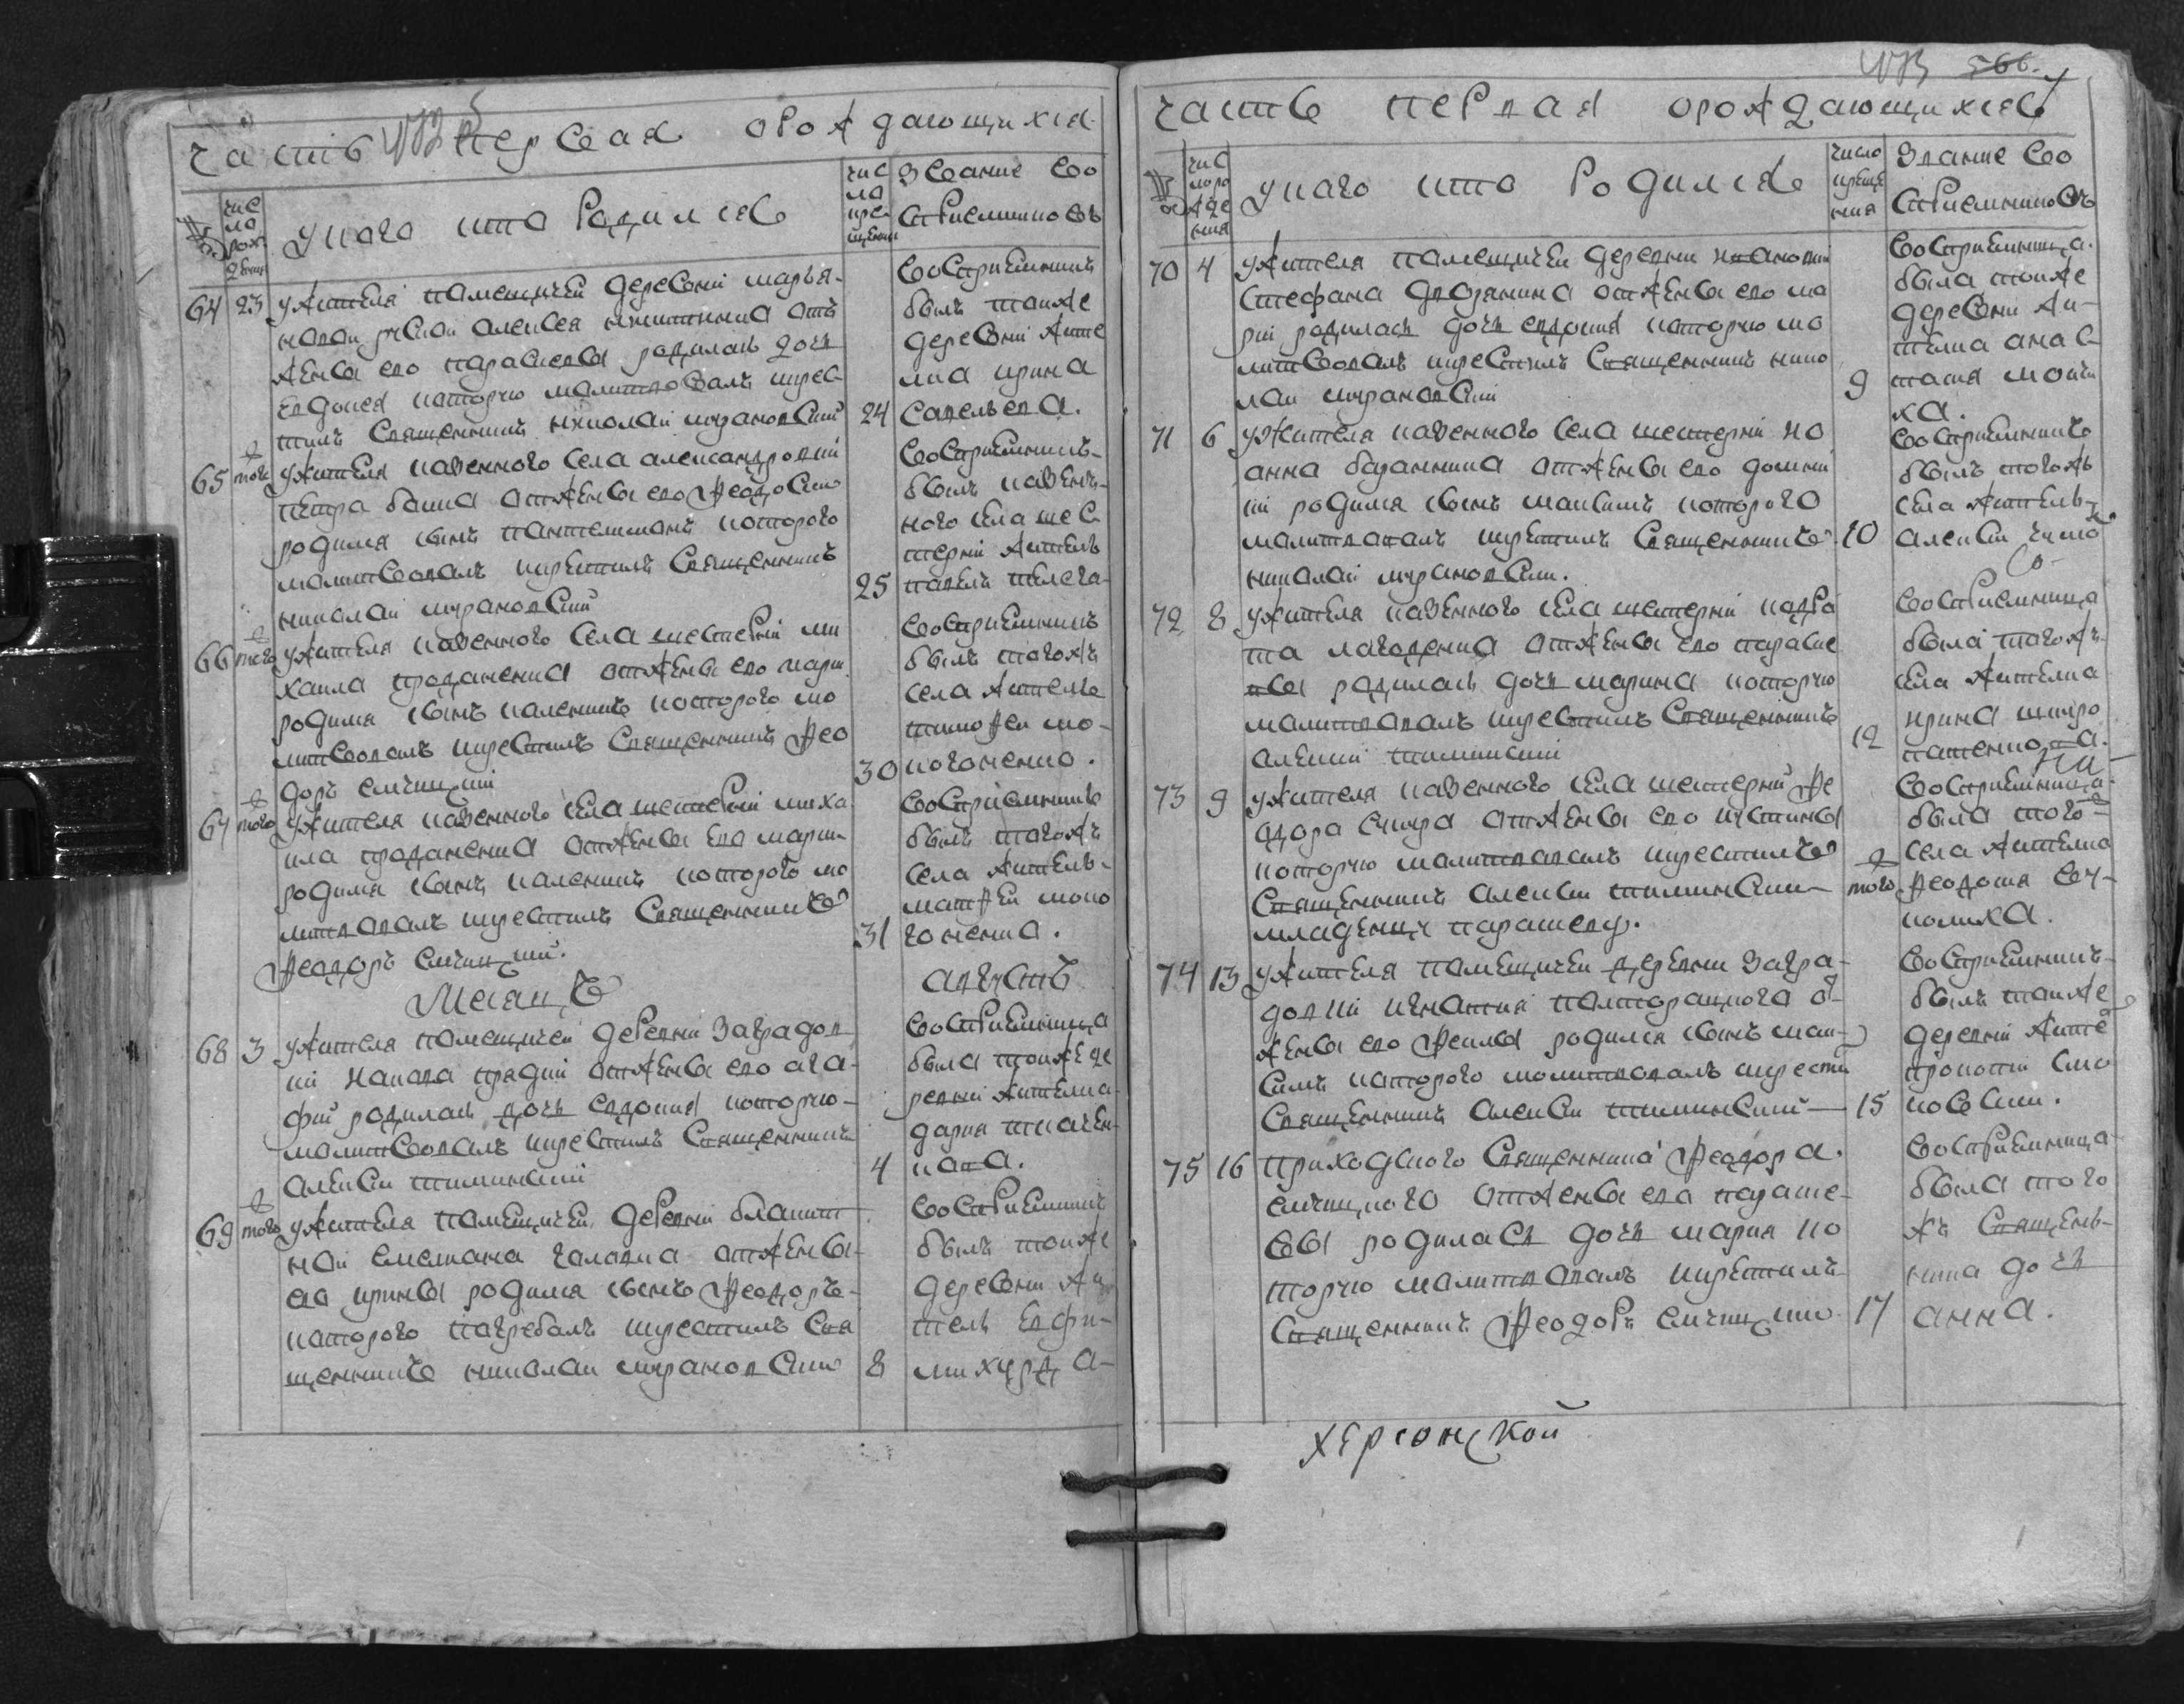 часть первая ораждающихся
числа рождения
у каго кто родился
числа крещения
звание восприемниковъ
64 23 ужителя памещичей деревни марья-
новки
алексея никитина отъ
жены его параскевы родилась дочь
евдокея которую малитвовалъ икрес-
тилъ священникъ николай мурановский
24
восприемникъ
былъ тойже
деревни жите
лка ирина
савельева.
65 того ужителя казенного села александровки
петра бошка отжены его феодосии
родился сынъ пантелимонъ которого
малитвовалъ икрестилъ священникъ
николай мурановский
25
восприемникъ
былъ казен-
ного села шес
терни житель
павелъ телега-
66 того ужителя казенного села шестерни ми
хаила проданенка отжены его марии
родился сынъ каленикъ которого мо
литвовалъ икрестилъ священникъ фео
доръ
30
восприемникъ
былъ тогожъ
села житель
тимофей мо-
ногоненко.
67 того ужителя казенного села шестерни миха
ила проданенка отжены его марии
родился сынъ каленикъ которого мо
литвовалъ икрестилъ священникъ
феодоръ
31
восприемникъ
былъ тогожъ
села житель-
матфей моно
гоненка.
Месяцъ августъ
68 3 ужителя памещичей деревни заградов
ки
отжены его ага-
фии родилась дочь евдокия которую-
малитвовалъ икрестилъ священникъ
алексий тилинский
4
восприемница
была тойже де
ревни жителка
дария ткачен-
кова.
69 того ужителя памещичей деревни блакит
ной емелиана галавка отжены-
его ирины родился сынъ феодоръ-
каторого пагребалъ икрестилъ свя
щенникъ николай мурановский
8
восприемникъ
былъ тойже
деревни жи
тель евфи-
мий хурда-
566.
часть первая ораждающихся
число рождения
у каго кто родился
число крещения
звание восприемниковъ
70 4 ужителя памещичей деревни
стефана дворянина отжены его ма
рии родилась дочь евдокия каторую мо
литвовалъ икрестилъ священникъ нико
лай мурановский
9
восприемница.
была тойже
деревни жи-
телка анас
тасия
ха.
71 6 ужителя казенного села шестерни ио
анна базанника отжены его домни
ки родился сынъ максимъ которого
малитвавалъ икрестилъ священникъ
николай мурановский.
10
восприемникъ
былъ тогожъ
села житель
алексий
72 8 ужителя казенного села шестерни кодра
та лагоденка отжены его параске
вы родилась дочь марина которую
малитвавалъ икрестилъ священникъ
алексий тилинский
12
восприемница
была тогожъ-
села жителка
ирина
73 9 ужителя казенного села шестерни фе
одора снира отжены его иустины
которую малитвавалъ икрестилъ
священникъ алексий тилинский
младенцу парашеву.
того
восприемница-
была того
села жителка
феодосия
74 13 ужителя памещичей деревни загра-
довки игнатия палторацкога от
жены его феклы родился сынъ мак-
симъ каторого молитвовалъ икрести
священникъ алексий тилинский
15
восприемникъ-
былъ тойже
деревни жите
прокопий ско
ковский.
75 16 приходского священника феодора.
отжены его параске-
вы родилась дочь мария ко
торую малитвавалъ икрестилъ
священникъ феодоръ
17
восприемница-
была того
жъ священ-
ника дочь
анна.
Херсонской